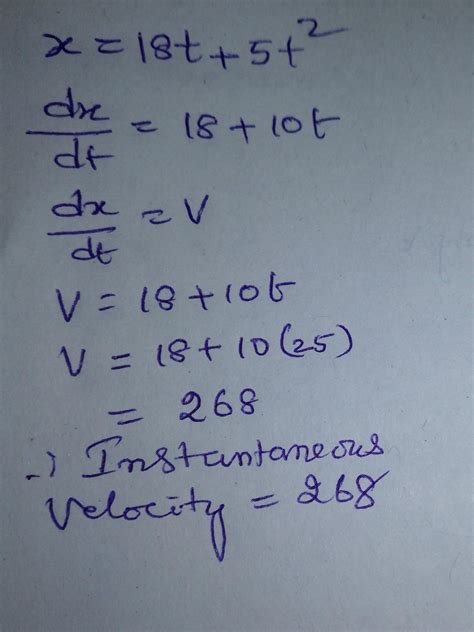 x = 18t + 5t²
dx/dt = 18 + 10t
dx/dt = V
V = 18 + 10t
V = 18 + 10(25)
= 268
∴ Instantaneous
Velocity = 268